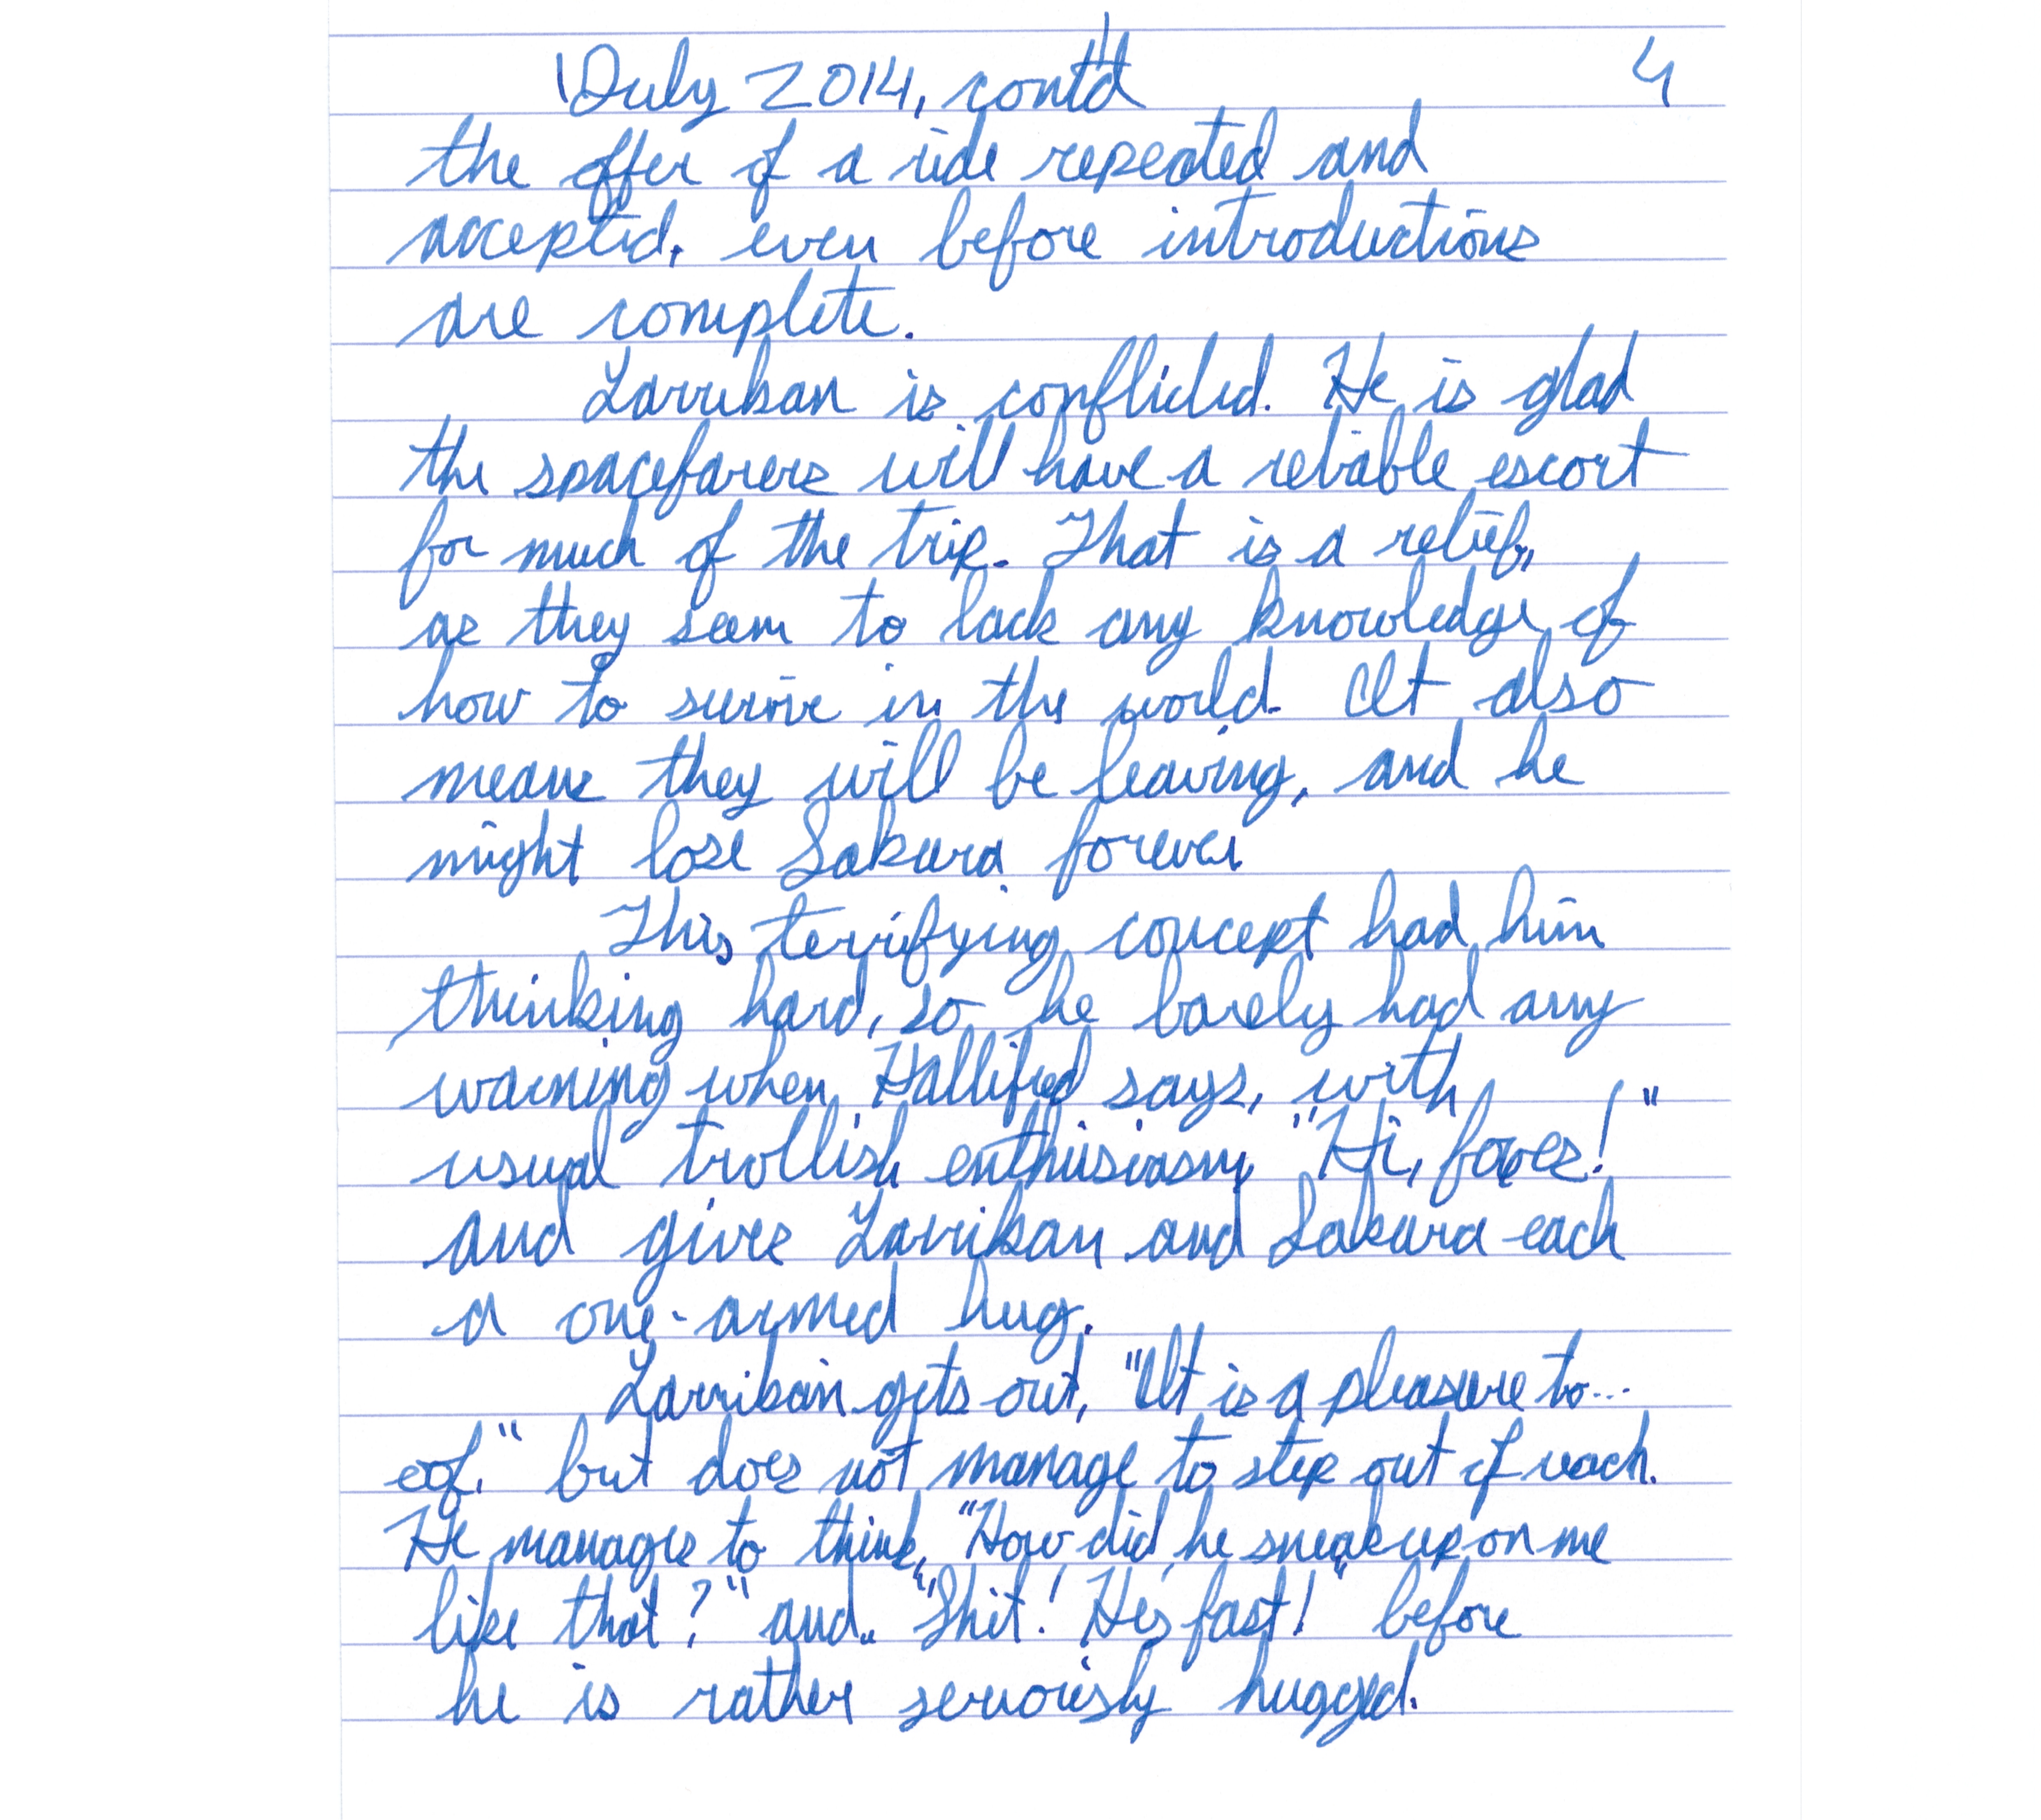 July 2014, cont'd 4
the offer of a ride repeated and
accepted, even before introductions
are complete.
Larrikan is conflicted. He is glad
the spacefarers will have a reliable escort
for much of the trip. That is a relief,
as they seem to lack any knowledge of
how to survive in the world. It also
means they will be leaving, and he
might lose Sakura forever.
This terrifying concept had him
thinking hard, so he barely had any
warning when Hallifred says, with
usual trollish enthusiasm, "Hi, foxes!"
and gives Larrikan and Sakura each
a one-armed hug.
Larrikan gets out, "It is a pleasure to...
oof." but does not manage to step out of reach.
He manages to think, "How did he sneak up on me
like that?" and "Shit! He's fast!" before
he is rather seriously hugged.